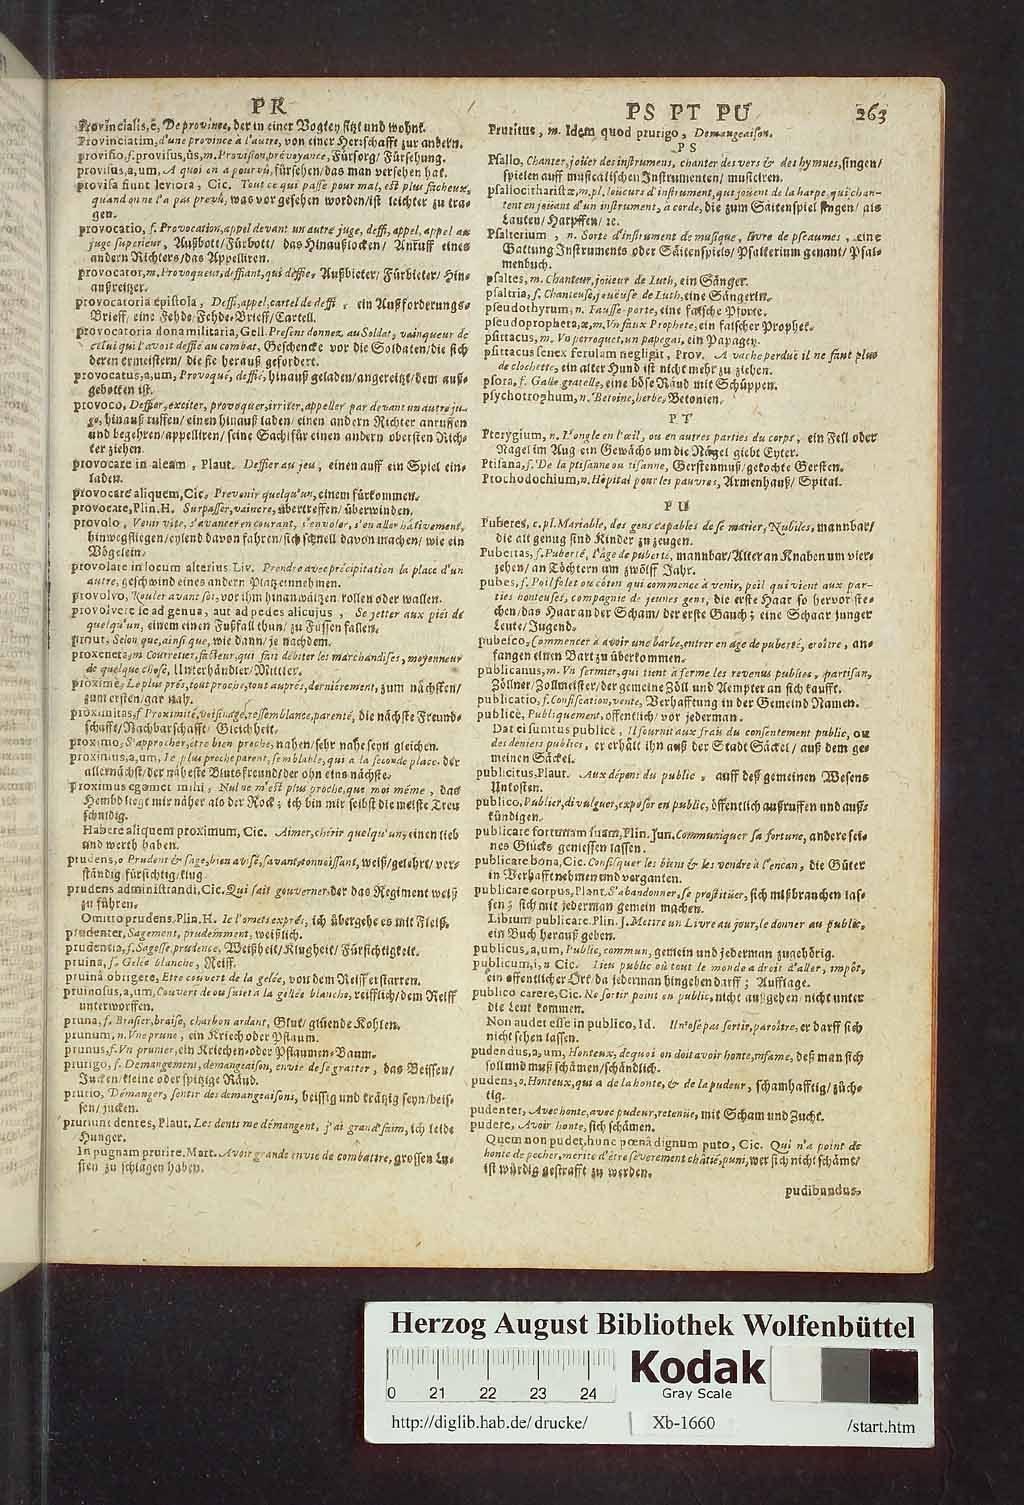 PR
Provincialis, e, De province, der in einer Vogtey sitzt und wohnt.
Provinciatim, d'une province à l'autre, von einer Herrschafft zur andern.
provisio, f. provisus, ûs, m. Provision, prévoyance, Fürsorg/ Fürsehung.
provisus, a, um, A quoi on a pourvû, fürsehen/ das man versehen hat.
provisa fiunt leviora, Cic. Tout ce qui passe pour mal, est plus fâcheux,
quand on ne l'a pas prevû, was vorgesehen worden/ ist leichter zu tra-
gen.
provocatio, f. Provocation, appel devant un autre juge, deffi, appel, appel au
juge superieur, Außbott/ Fürbott/ das Hinaußlocken/ Anruff eines
andern Richters/ das Appelliren.
provocator, m. Provoqueur, deffiant, qui deffie, Außbieter/ Fürbieter/ Hin-
außreitzer.
provocatoria epistola, Deffi, appel, cartel de deffi, ein Außforderungs-
Brieff/ eine Fehde/ Fehde-Brieff/ Cartell.
provocatoria dona militaria, Gell. Present donnez au Soldat, vainqueur de
celui qui l'avoit deffié au combat, Geschencke vor die Soldaten/ die sich
deren ermeistern/ die sie herauß gefordert.
provocatus, a, um, Provoqué, deffié, hinauß geladen/ angereitzt/ dem auß-
gebotten ist.
provoco, Deffier, exciter, provoquer, irriter, appeller par devant un autre ju-
ge, hinauß ruffen/ einen hinauß laden/ einen andern Richter anruffen
und begehren/ appelliren/ seine Sach für einen andern obersten Rich-
ter ziehen.
provocare in aleam, Plaut. Deffier au jeu, einen auff ein Spiel ein-
laden.
provocare aliquem, Cic. Prevenir quelqu'un, einem fürkommen.
provocare, Plin. H. Surpasser, vaincre, übertreffen/ überwinden.
provolo, Venir vite, s'avancer en courant, s'envoler, s'en aller hâtivement,
hinwegfliegen/ eylend davon fahren/ sich schnell davon machen/ wie ein
Vögelein.
provolare in locum alterius Liv. Prendre avec précipitation la place d'un
autre, geschwind eines andern Platz einnehmen.
provolvo, Rouler avant soi, vor ihm hinanwältzen rollen oder wallen.
provolvere se ad genua, aut ad pedes alicujus, Se jetter aux piés de
quelqu'un, einem einen Fußfall thun/ zu Füssen fallen.
prout, Selon que, ainsi que, wie dann/ je nachdem.
proxeneta, m Courretier, facteur, qui fait débiter les marchandises, moyenneur
de quelque chose, Unterhändler/ Mittler.
proximè, Le plus prés, tout proche, tout auprés, derniérement, zum nächsten/
zum ersten/ gar nah.
proximitas, f Proximité, voisinage, ressemblance, parenté, die nächste Freund-
schafft/ Nachbarschafft/ Gleichheit.
proximo, S'approcher, être bien proche, nahen/ sehr nahe seyn gleichen.
proximus, a, um, Le plus proche parent, semblable, qui a la seconde place. der
allernächst/ der näheste Blutsfreund/ der ohn eins nächste.
Proximus egomet mihi, Nul ne m'est plus proche, que moi méme, das
Hembd liegt mir näher als der Rock; ich bin mir selbst die meiste Treu
schuldig.
Habere aliquem proximum, Cic. Aimer, chérir quelqu'un, einen lieb
und werth haben.
prudens, o Prudent & sage, bien avisé, savant, connoissant, weiß/ gelehrt/ ver-
ständig fürsichtig/ klug.
prudens administrandi, Cic. Qui sait gouverner, der das Regiment weiß
zu führen.
Omitto prudens. Plin. H. Je l'omets exprés, ich übergehe es mit Fleiß.
prudenter, Sagement, prudemment, weißlich.
prudentia, f. Sagesse, prudence, Weißheit/ Klugheit/ Fürsichtigkeit.
pruina, f. Gelée blanche, Reiff.
pruinâ obrigere, Etre couvert de la gelée, von dem Reiff erstarren.
pruinosus, a, um, Couvert de ou sujet à la gelée blanche, reifflich/ dem Reiff
unterworffen.
pruna, f. Brasier, braise, charbon ardant, Glut/ glüende Kohlen.
prunum, n. Une prune, ein Kriech oder Pflaum.
prunus, f. Un prunier, ein Kriechen- oder Pflaumen-Baum.
prurigo, f. Démangement, démangeaison, envie de se gratter, das Beissen/
Jucken/ kleine oder spitzige Räud.
prurio, Démanger, sentir des demangeaisons, beissig und krätzig seyn/ beis-
sen/ jucken.
pruriunt dentes, Plaut. Les dents me démangent, j'ai grand' faim, ich leide
Hunger.
In pugnam prurire. Mart. Avoir grande envie de combattre, grossen Lu-
sten zu schlagen haben.
PS PT PU 263
Pruritus, m. Idem quod prurigo, Demangeaison.
PS
Psallo, Chanter, joüer des instrumens, chanter des vers & des hymnes, singen/
spielen auff musicalischen Instrumenten/ musiciren.
psallocitharistæ, m, pl. Joüeurs d'instrument, qui joüent de la harpe, qui chan-
tent en joüant d'un instrument, à corde, die zum Säitenspiel singen/ als
Lauten/ Harpffen/ ec.
Psalterium, n. Sorte d'instrument de musique, livre de pseaumes, eine
Gattung Instruments oder Säitenspiels/ Psalterium genant/ Psal-
menbuch.
psaltes, m. Chanteur, joüeur de Luth, ein Sänger.
psaltria, f. Chanteuse, joueuse de Luth, eine Sängerin.
pseudothyrum, n. Fausse-porte, eine falsche Pforte.
pseudopropheta, æ, m, Un faux Prophete, ein falscher Prophet.
psittacus, m. Un perroquet, un papegai, ein Papagey.
psittacus senex ferulam negligit, Prov. A vache perduë il ne faut plus
de clochette, ein alter Hund ist nicht mehr zu ziehen.
psora, f. Galle gratelle, eine böse Räud mit Schüppen.
psychotrophum, n. Betoine, herbe, Betonien.
PT
Pterygium, n. L'ongle en l'œil, ou en autres parties du corps, ein Fell oder
Nagel im Aug ein Gewächs um die Nägel giebt Eyter.
Ptisana, f. De la ptisanne ou tisanne, Gerstenmuß/ gekochte Gersten.
Ptochodochium, n. Hôpital pour les pauvres, Armenhauß/ Spital.
PU
Puberes, c. pl. Mariable, des gens capables de se marier, Nubiles, mannbar/
die alt genug sind Kinder zu zeugen.
Pubertas, f. Puberté, l'âge de puberté, mannbar/ Alter an Knaben um vier-
zehen/ an Töchtern um zwölff Jahr.
pubes, f. Poil folet ou coton qui commence à venir, poil qui vient aux par-
ties honteuses, compagnie de jeunes gens, die erste Haar so hervor ste-
chen/ das Haar an der Scham/ der erste Gauch; eine Schaar junger
Leute/ Jugend.
pubesco, Commencer à avoir une barbe, entrer en âge de puberté, croître, an-
fangen einen Bart zu überkommen.
publicanus, m. Un fermier, qui tient à ferme les revenus publics, partisan,
Zöllner/ Zollmeister/ der gemeine Zöll und Aempter an sich kaufft.
publicatio, f. Confiscation, vente, Verhafftung in der Gemeind Namen.
publicè, Publiquement, offentlich/ vor jederman.
Dat ei sumitus publicè, Il fournit aux frais du consentement public, ou
des deniers publics, er erhält ihn auß der Stadt Säckel/ auß dem ge-
meinen Säckel.
publicitus, Plaut. Aux dépens du public, auff deß gemeinen Wesens
Unkosten.
publico, Publier, divulguer, exposer en public, öffentlich außruffen und auß-
kündigen.
publicare fortunam suam, Plin. Jun. Communiquer sa fortune, andere sei-
nes Glücks geniessen lassen.
publicare bona, Cic. Confisquer les biens & les vendre à l'encan, die Güter
in Verhafft nehmen und verganten.
publicare corpus, Plaut. S'abandonner, se prostitüer, sich mißbrauchen las-
sen; sich mit jederman gemein machen.
Librum publicare. Plin. J. Mettre un Livre au jour, le donner au public,
ein Buch herauß geben.
publicus, a, um, Public, commun, gemein und jederman zugehörig.
publicum, i, n Cic. Lieu public où tout le monde a droit d'aller, impôt,
ein offentlicher Ort/ da jederman hingehen darff; Aufflage.
publico carere, Cic. Ne sortir point en public, nicht außgehen/ nicht unter
die Leut kommen.
Non audet esse in publico, Id. Il n'ose pas sortir, paroître, er darff sich
nicht sehen lassen.
pudendus, a, um, Honteux, de quoi on doit avoir honte, infame, deß man sich
soll und muß schämen/ schändlich.
pudens, o, Honteux, qui a de la honte, & de la pudeur, schamhafftig/ züch-
tig.
pudenter, Avec honte, avec pudeur, retenüe, mit Scham und Zucht.
pudere, Avoir honte, sich schämen.
Quem non pudet, hunc pœnâ dignum puto, Cic. Qui n'a point de
honte de pecher, merite d'être sévérement châtié, puni, wer sich nicht schämt/
ist würdig gestrafft zu werden.
pudibundus,
Herzog August Bibliothek Wolfenbüttel
0 21 22 23 24
Kodak
Gray Scale
http://diglib.hab.de/drucke/ Xb-1660 /start.htm